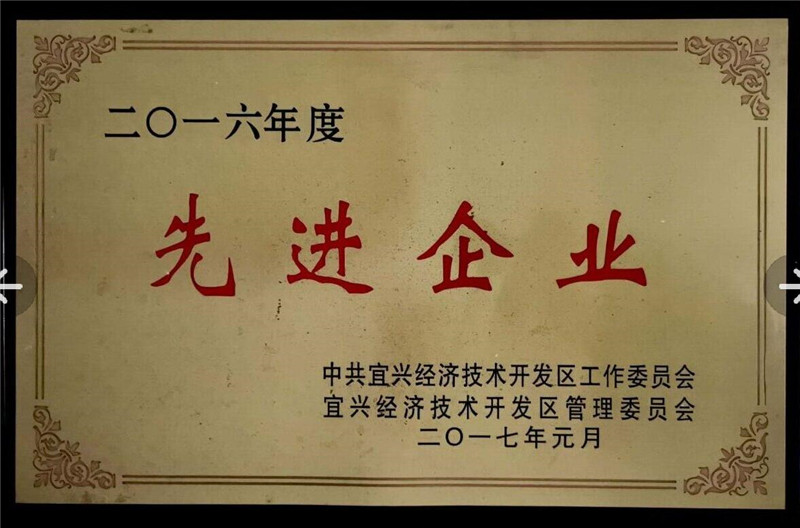 二〇一六年度
先进企业
中共宜兴经济技术开发区工作委员会
宜兴经济技术开发区管理委员会
二〇一七年元月